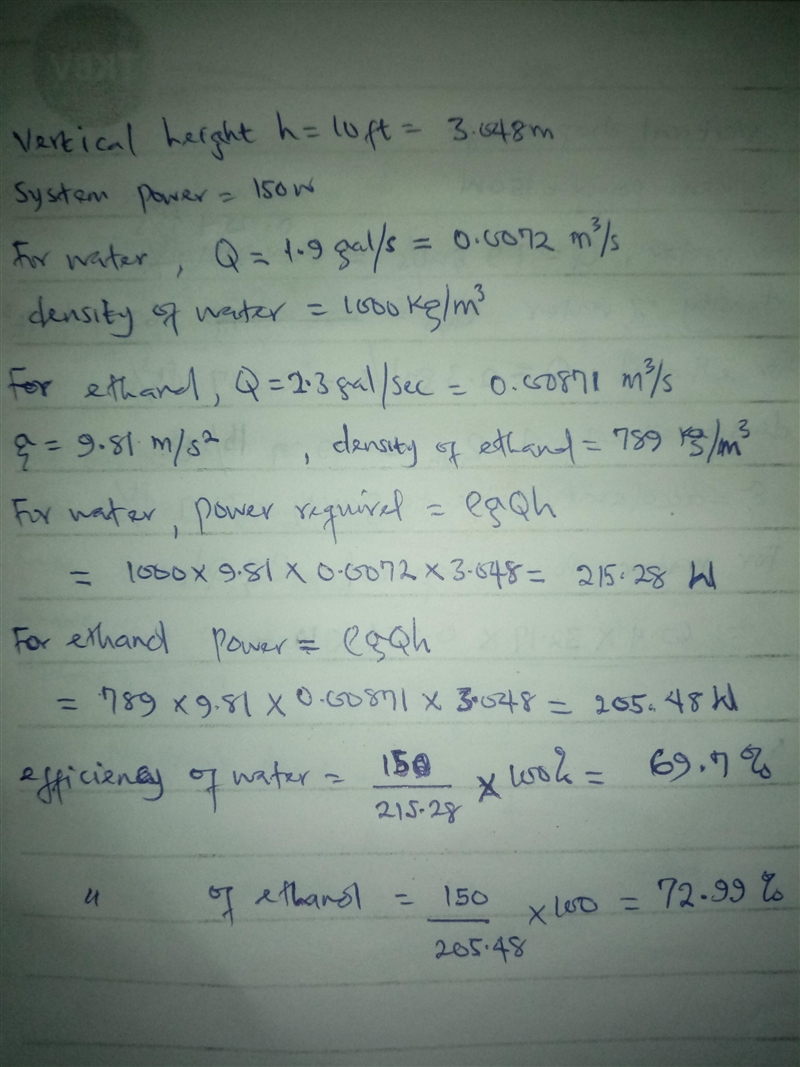 TKBV
Vertical height h = 10ft = 3.048m
System power = 150W
For water, Q = 1.9 gal/s = 0.0072 m³/s
density of water = 1000 kg/m³
For ethanol, Q = 2.3 gal/sec = 0.00871 m³/s
g = 9.81 m/s², density of ethanol = 789 kg/m³
For water, power required = ρgQh
= 1000 × 9.81 × 0.0072 × 3.048 = 215.28 W
For ethanol power = ρgQh
= 789 × 9.81 × 0.00871 × 3.048 = 205.48 W
efficiency of water = 150/215.28 × 100% = 69.7 %
" of ethanol = 150/205.48 × 100 = 72.99 %